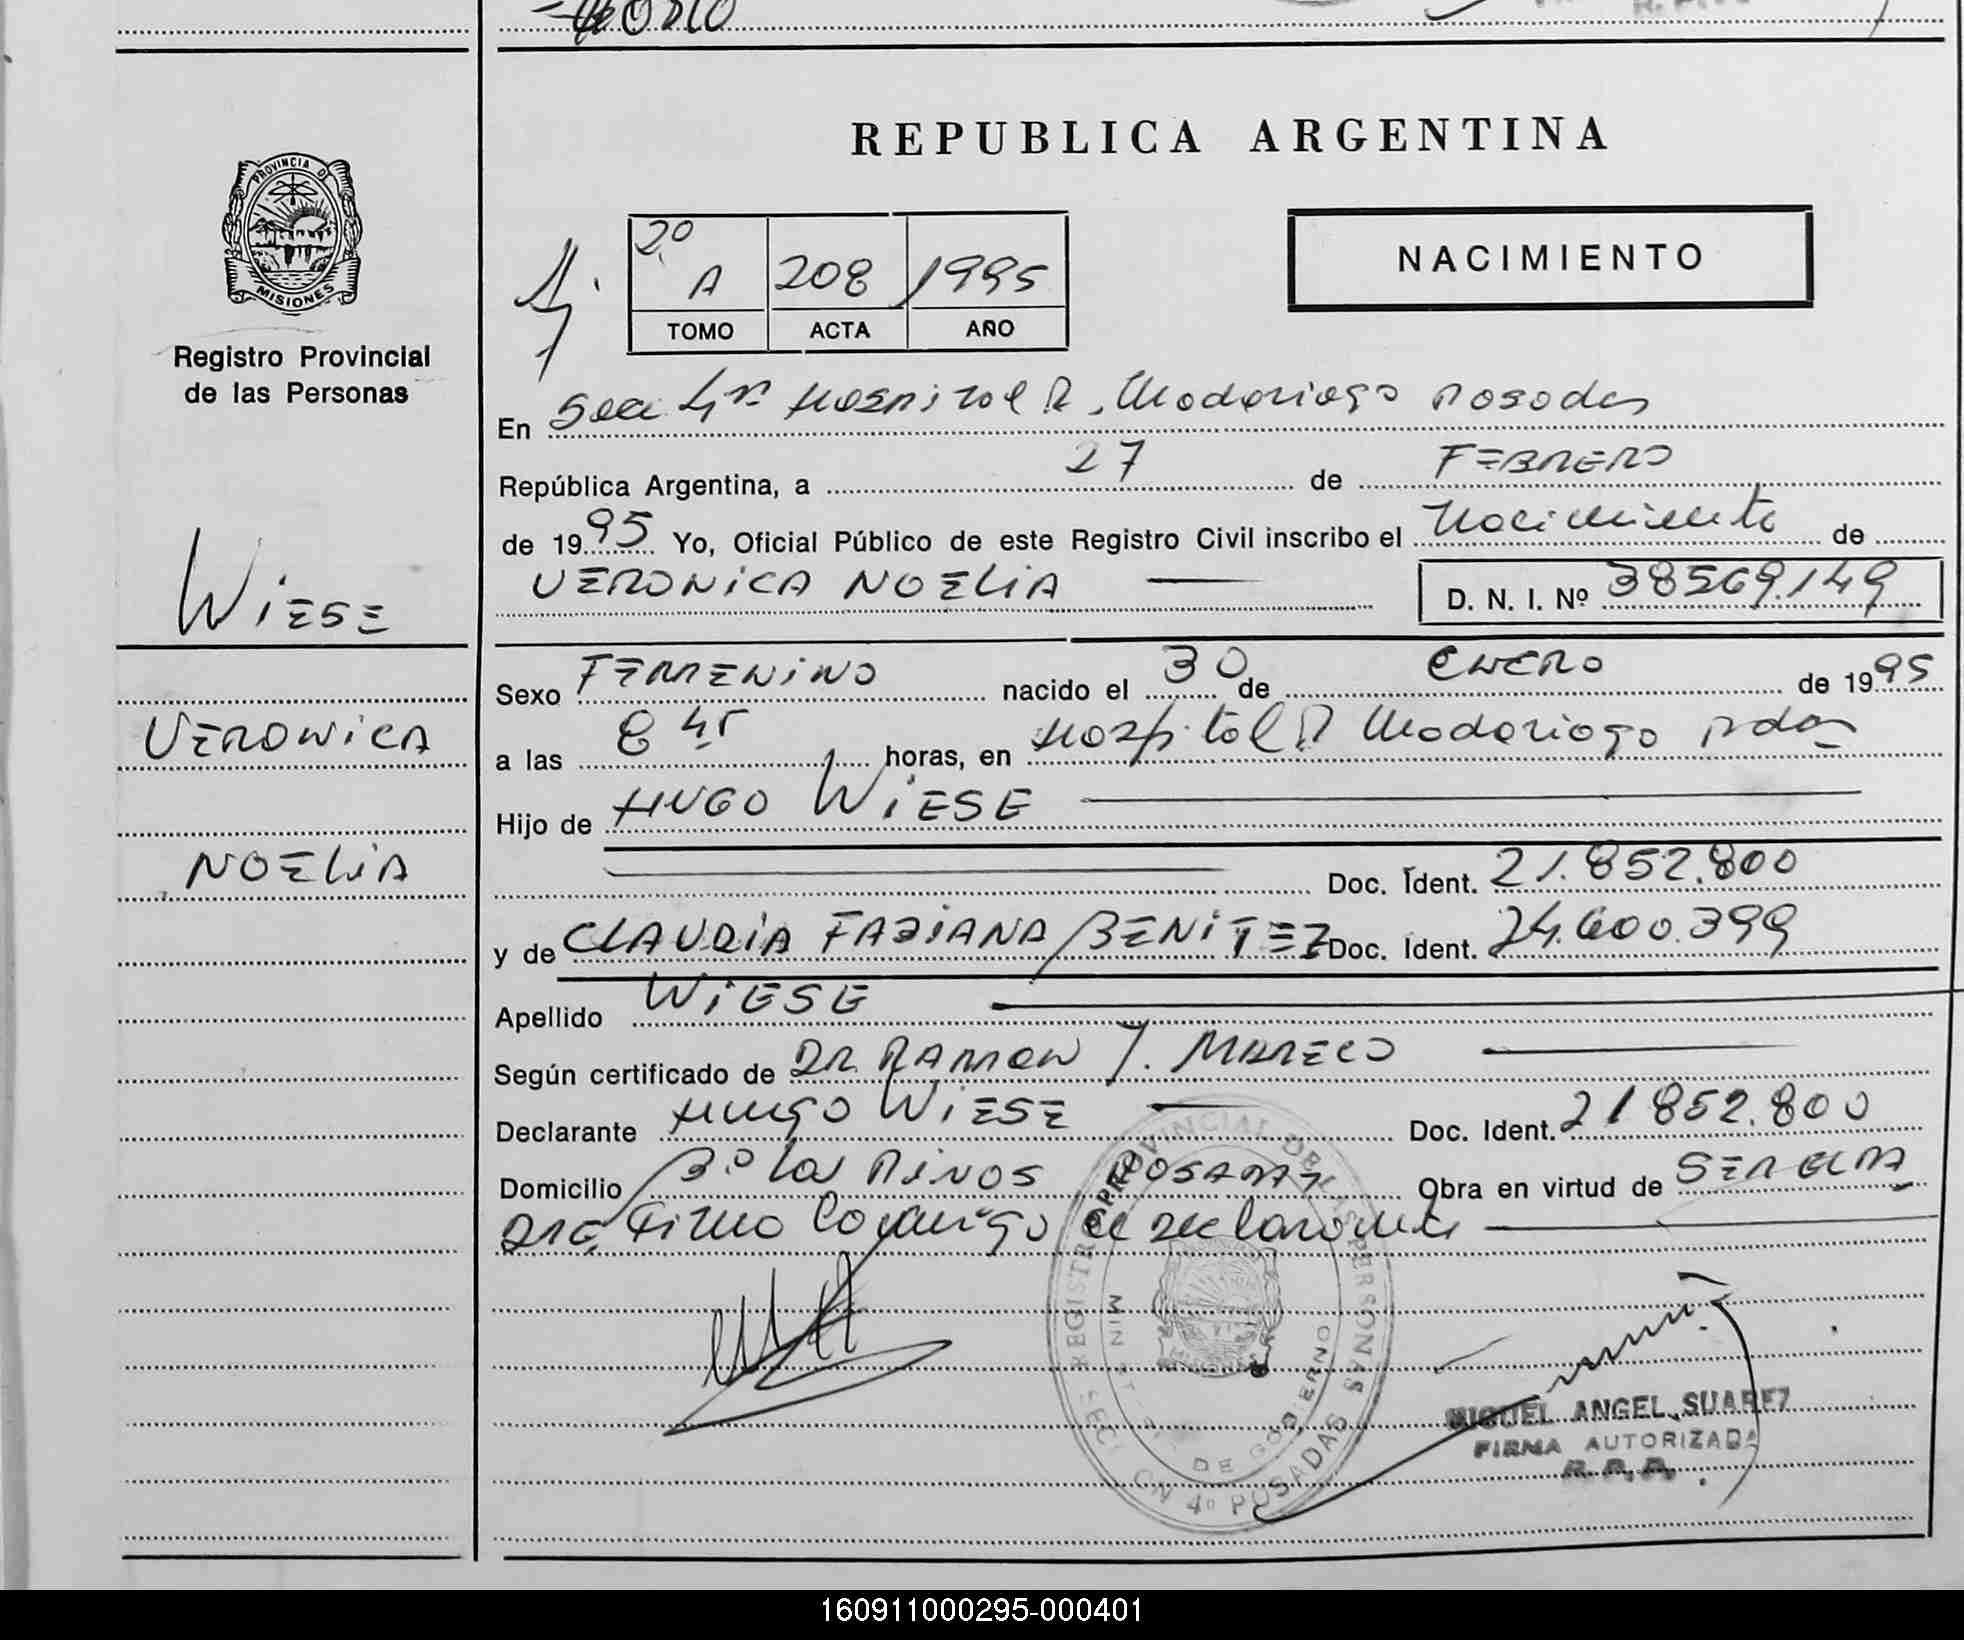 REPUBLICA ARGENTINA
PROVINCIA DE
MISIONES
Registro Provincial
de las Personas
2º
A 208 1995
TOMO ACTA AÑO
NACIMIENTO
En Secc 4ta Hospital R. Madariaga Posadas
República Argentina, a 27 de FEBRERO
de 1995 Yo, Oficial Público de este Registro Civil inscribo el Nacimiento de
VERONICA NOELIA
D. N. I. Nº 38569.149
WIESE
VERONICA
NOELIA
Sexo FEMENINO nacido el 30 de ENERO de 1995
a las 8 45 horas, en Hospital R Madariaga Pdas
Hijo de HUGO WIESE
Doc. Ident. 21.852.800
y de CLAUDIA FABIANA BENITEZ Doc. Ident. 24.600.399
Apellido WIESE
Según certificado de DR. RAMON J. MARECO
Declarante HUGO WIESE Doc. Ident. 21852.800
Domicilio Bº Los PINOS POSADAS Obra en virtud de SER EL PA
DRE Firma Conmigo el declarante
REGISTRO PROVINCIAL DE LAS PERSONAS
MINISTERIO DE GOBIERNO
SECCION 4º POSADAS
MIGUEL ANGEL SUAREZ
FIRMA AUTORIZADA
R. P. P.
160911000295-000401